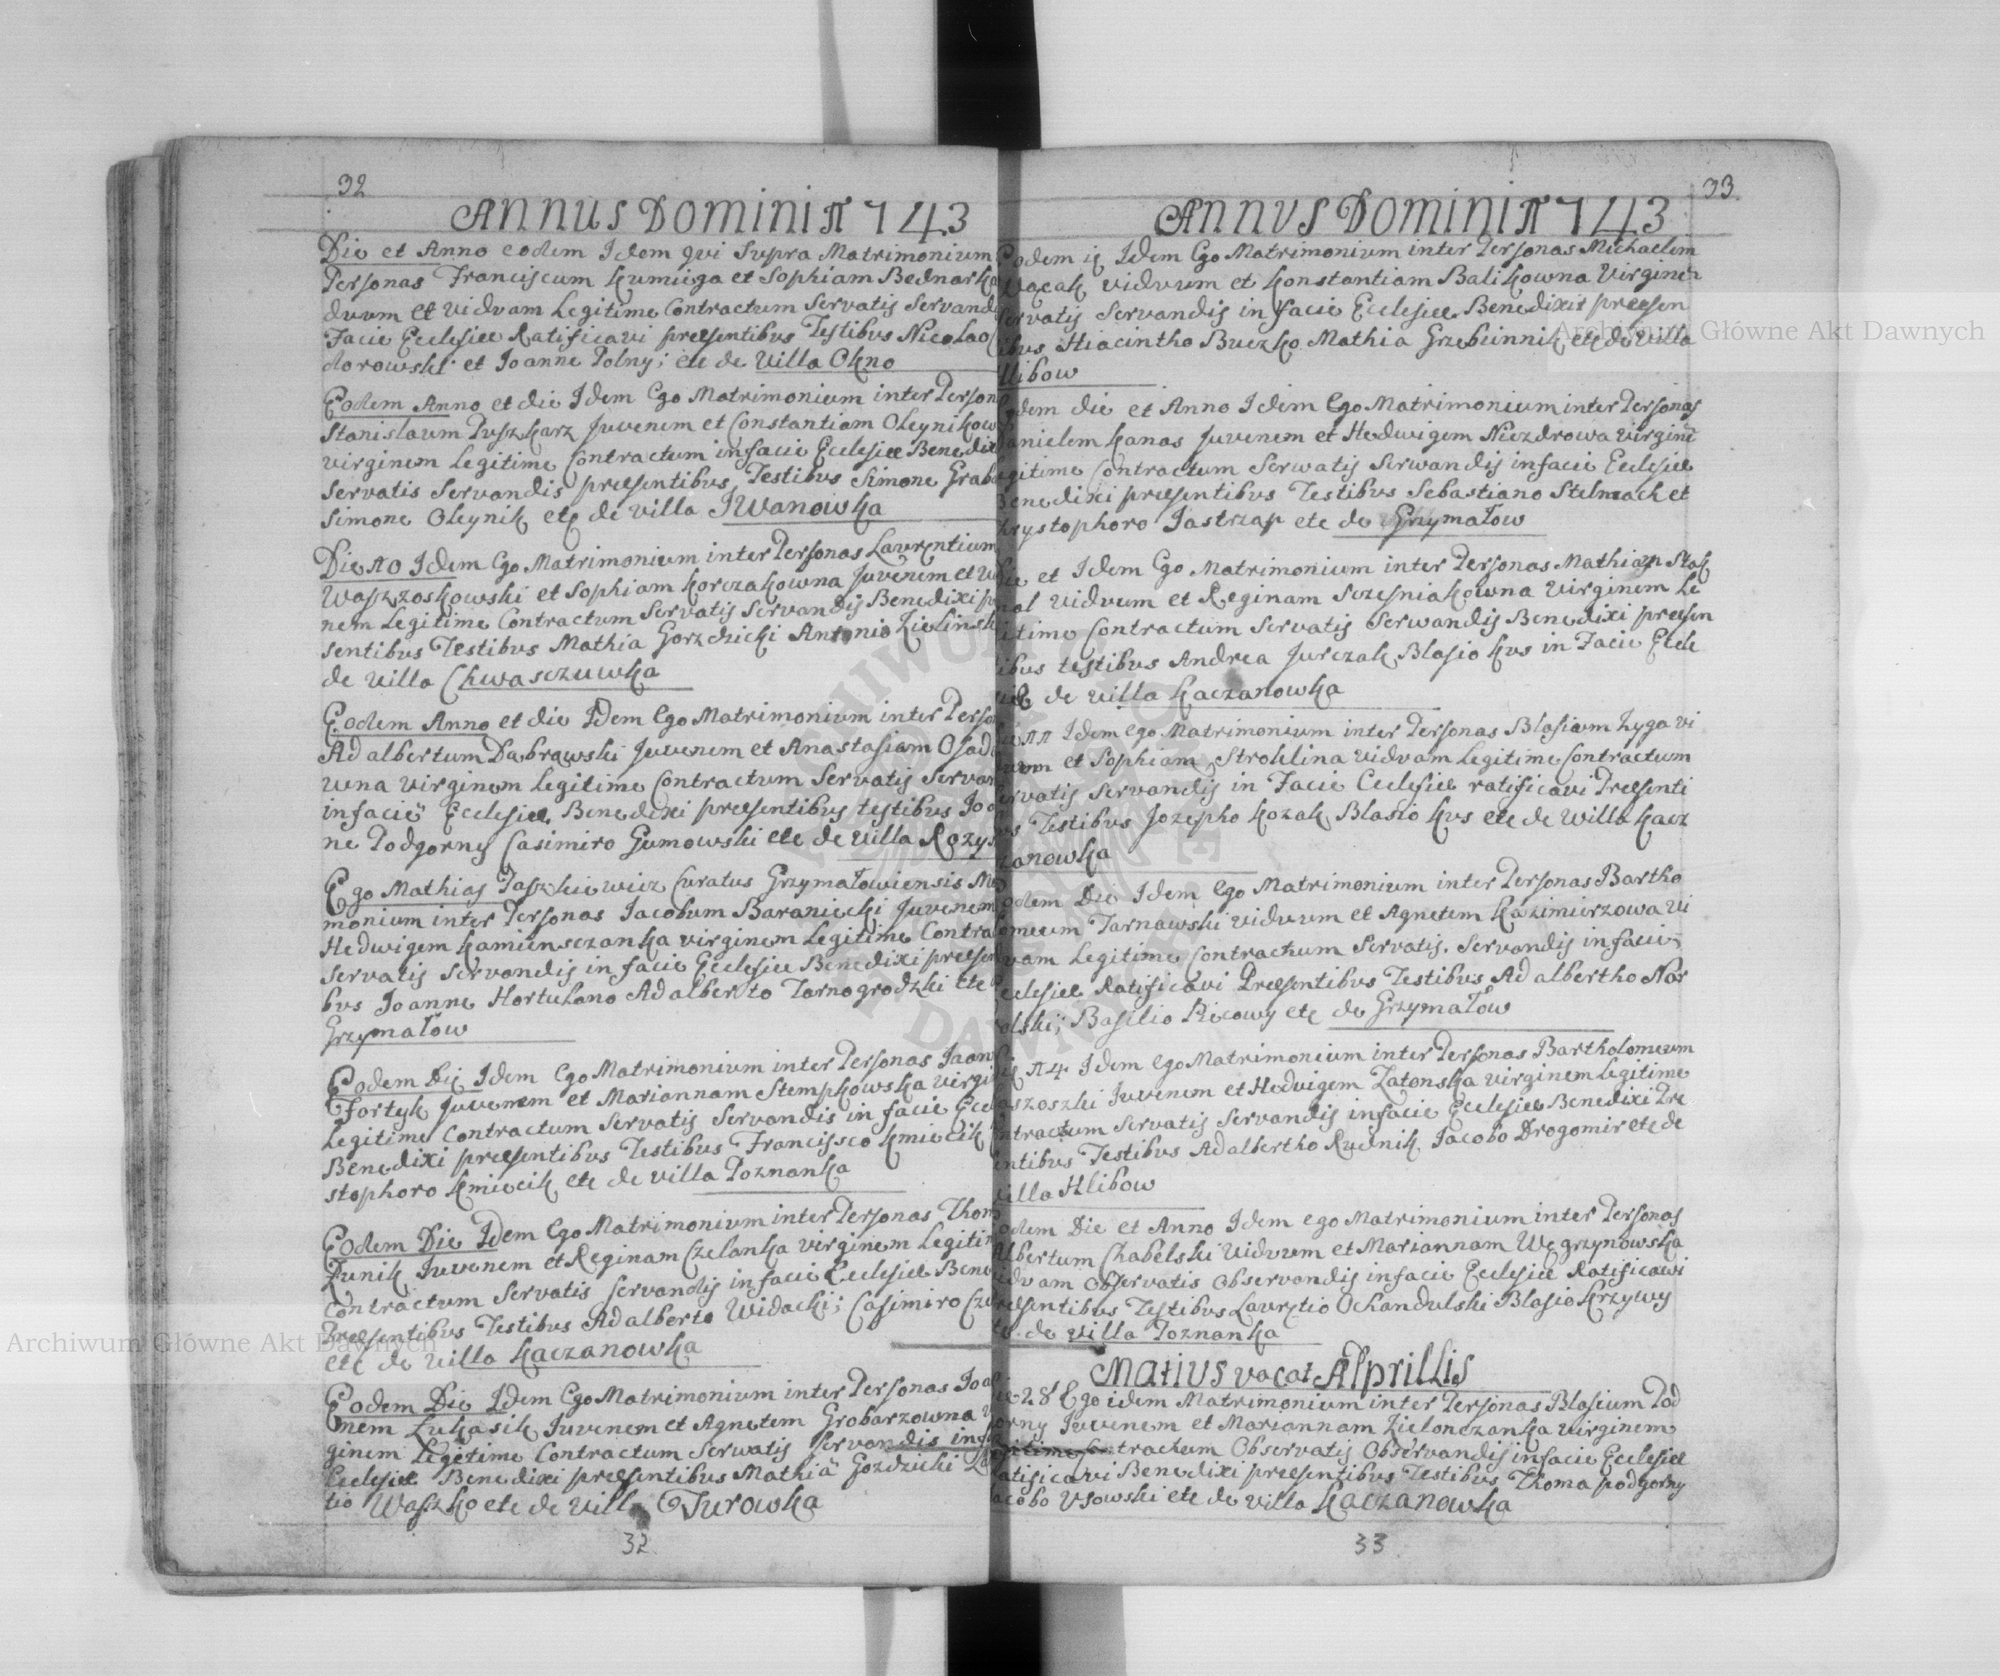 32
ANNUS DOMINI 1743
Die et Anno eodem Idem qvi Supra Matrimonium
Personas Franciscum Kumięga et Sophiam Bednark
duum et viduam Legitime Contractum Servatis Servand
Facie Ecclesiæ Ratificavi præsentibus Testibus Nicolao
dorowski et Joanne Polny; etc de Villa Okno
Eodem Anno et die Idem Ego Matrimonium inter Person
Stanislaum Puszkarz Juvenem et Constantiam Oleynikow
virginem Legitime Contractum in facie Ecclesiæ Benedix
Servatis Servandis præsentibus Testibus Simone Grab
Simone Oleynik etc de villa IWanowka
Die 10 Idem Ego Matrimonium inter Personas Laurentium
Waszzoskowski et Sophiam Korczakowna Juvenem et Vi
nem Legitime Contractum Servatis Servandis Benedixi p
sentibus Testibus Mathia Gorzdzicki Antonio Zielinsk
de villa Chwasczuwka
Eodem Anno et die Idem Ego Matrimonium inter Perso
Adalbertum Dabrawski Juvenem et Anastasiam Osad
wna virginem Legitime Contractum Servatis Servan
in facie Ecclesiæ Benedixi præsentibus testibus Joa
ne Podgorny Casimiro Gumowski etc de villa Rozys
Ego Mathias Paszkiewicz Curatus Grzymałowiensis M
monium inter Personas Jacobum Baraniecki Juvenem
Hedwigem Kamiensczanka virginem Legitime Contra
Servatis Servandis in facie Ecclesiæ Benedixi præsen
bus Joanne Hortulano Adalberto Tarnogrodzki etc
Grzymałow
Eodem Die Idem Ego Matrimonium inter Personas Joan
Fortyk Juvenem et Mariannam Stempkowska virgi
Legitime Contractum Servatis Servandis in facie Ecc
Benedixi præsentibus Testibus Francissco Kmiecik
stophoro Kmiecik etc de villa Poznanka
Eodem Die Idem Ego Matrimonium inter Personas Thom
Zunik Juvenem et Reginam Czelanka verginem Legiti
Contractum Servatis servandis in facie Ecclesiæ Bene
Præsentibus Testibus Adalberto Widacki; Casimiro Cz
etc de villa Kaczanowka
Eodem Die Idem Ego Matrimonium inter Personas Joa
nem Lukasik Juvenem et Agnetem Grobarzowna v
ginem Legitime Contractum Serwatis servandis in fa
Ecclesiæ Benedixi præsentibus Mathia Gozdzicki
tio Waszko etc de Villa Turowka
32
33
ANNVS DOMINI 1743
odem ie Idem Ego Matrimonium inter Personas Michaelem
viduum et Konstantiam Balikowna Virginē
ervatis Servandis in facie Ecclesiæ Benedixit præsen
ibus Hiacintho Buczko Mathia Grzebinnik etc de Villa
libow
odem die et Anno Idem Ego Matrimonium inter Personas
anielem Kanas Juvenem et Hedwigem Niezdrowa virginē
gitime Contractum Serwatis Serwandis in facie Ecclesiæ
enedixi præsentibus Testibus Sebastiano Stelmach et
rystophoro Jastrząp etc de Grzymałow
ie et Idem Ego Matrimonium inter Personas Mathiam Stak
nal viduum et Reginam Sczesniakowna virginem Le
itime Contractum Servatis Serwandis Benedixi præsen
ibus testibus Andrea Jurczak Blasio Kus in Facie Eccle
iæ de villa Kaczanowka
ie 11 Idem ego Matrimonium inter Personas Blasium Zyga vi
uum et Sophiam Strohlina viduam Legitime Contractum
ervatis Servandis in Facie Ecclesiæ ratificavi Præsenti
us Testibus Jozepho Kozak Blasio Kus etc de Willa Kacz
zanowka
odem Die Idem Ego Matrimonium inter Personas Bartho
omeum Tarnawski viduum et Agnetem Kazimierzowa vi
vam Legitime Contractum Servatis. Servandis in facie
cclesiæ Ratificavi Præsentibus Testibus Adalbertho Nar
olski; Basilio Ricowy etc de Grzymałow
ie 14 Idem Ego Matrimonium inter Personas Bartholomeum
aszoszki Juvenem et Hedvigem Zatonska virginem Legitime
ntractum Servatis Servandis in facie Ecclesiæ Benedixi Præ
entibus Testibus Adalbertho Rudnik Jacobo Drogomir etc de
illa Hlibow
odem Die et Anno Idem ego Matrimonium inter Personas
lbertum Chabelski Viduum et Mariannam Węgrzynowska
iduam Observatis Observandis in facie Ecclesiæ Ratificawi
ræsentibus Testibus Laurētio Ochandulski Blasio Krzywy
tc. de villa Poznanka
Matius vacat Alprillis
ie 28 Ego idem Matrimonium inter Personas Blasium Pod
orny Juvenem et Mariannam Zielonczanka virginem
gitime Contractum Observatis Observandis in facie Ecclesiæ
atificavi Benedixi præsentibus Testibus Thoma podgorny
acobo Vsowski etc de villa Kaczanowka
33
Archiwum Główne Akt Dawnych
Archiwum Główne Akt Dawnych